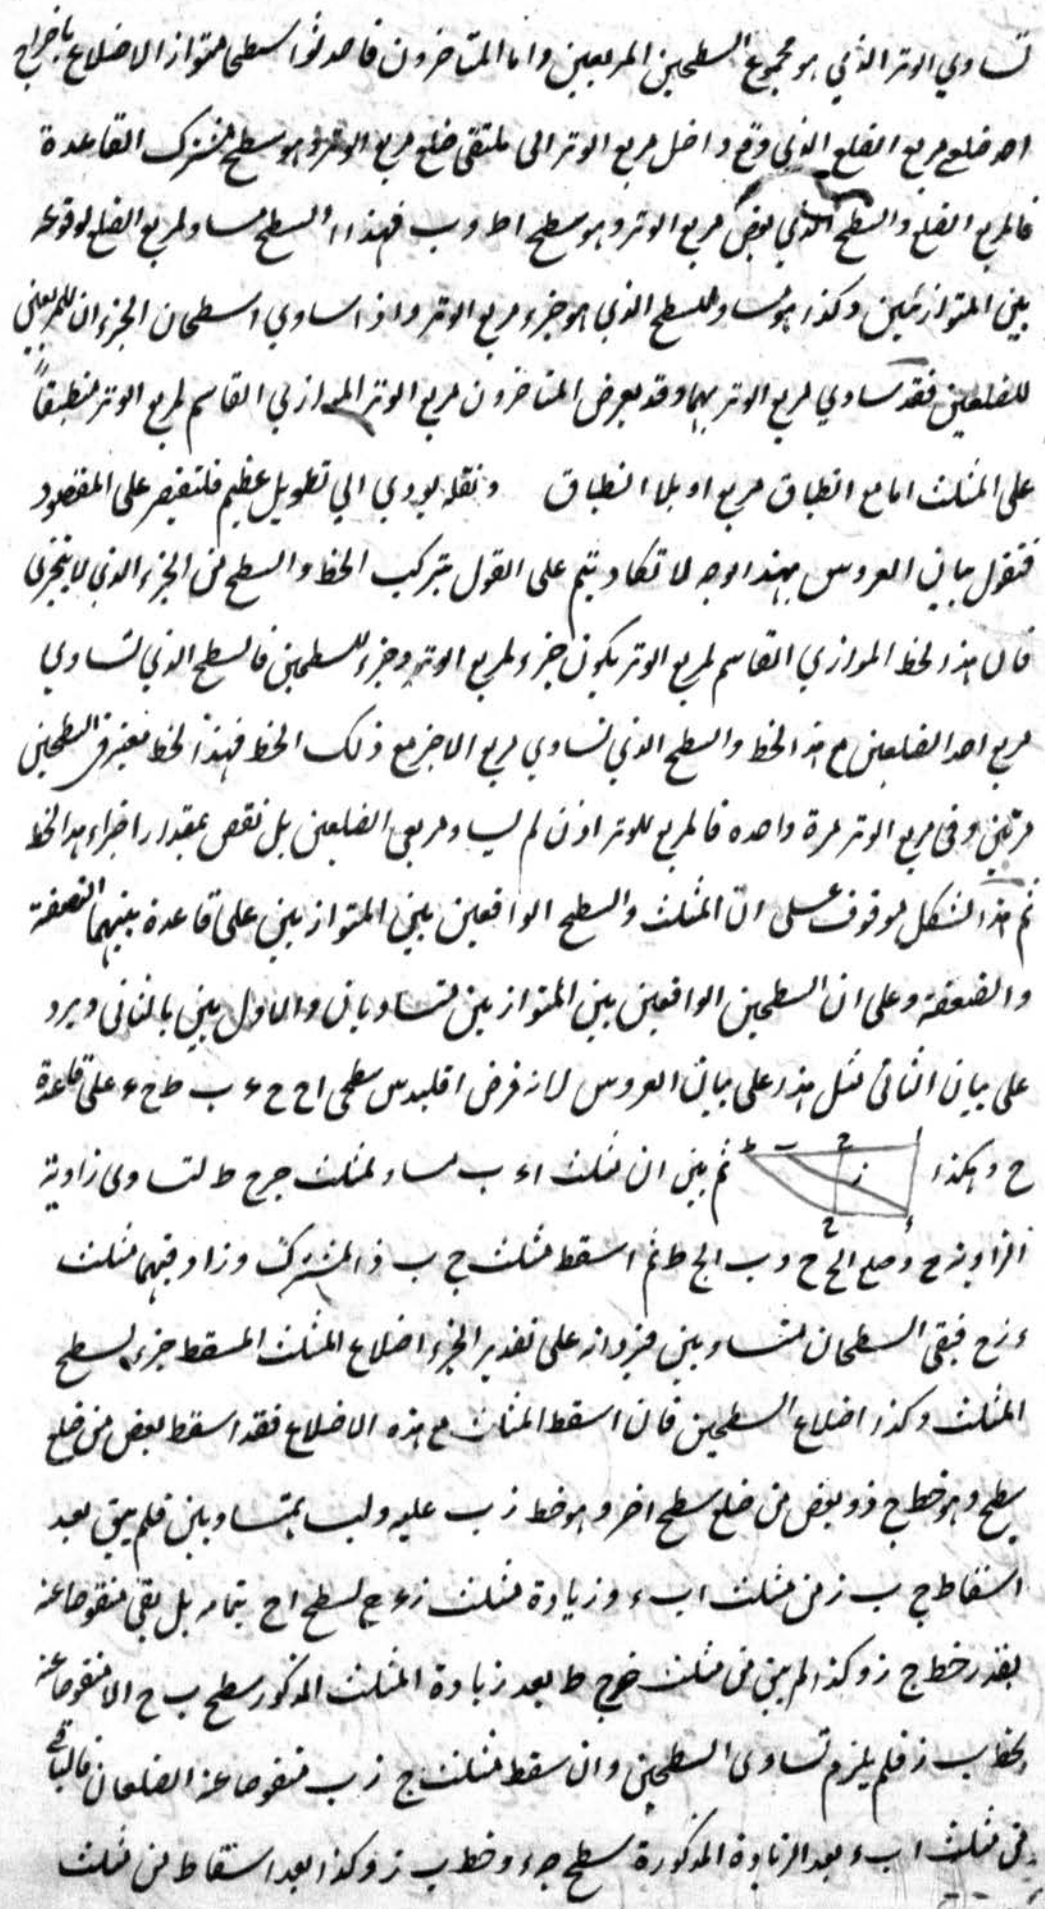 تساوي الوتر الذي هو مجموع السطحين المربعين واما المتاخرون فاحدثوا سطحا متوازالاضلاع باخراج
احد ضلعي مربع الضلع الذي وقع داخل مربع الوتر الى ملتقى ضلع مربع الوتر وهو سطح مشترك القاعدة
فالمربع الضلع والسطح الذي بعض مربع الوتر وهو سطح اط وب فهذا السطح مساو لمربع الضلع لوقوعه
بين المتوازيتين وكذا هو مساو للسطح الذي هو جزء مربع الوتر واذا ساوي السطحان الجزءان للمربعين
للضلعين فقد ساوي مربع الوتر بهما وقد يعرض المتاخرون مربع الوتر الموازي القاسم لمربع الوتر منطبقاً
على المثلث اما مع انطباق مربع او بلا انطباق ونقله يودي الي تطويل عظيم فلنقتصر على المقصود
فنقول بيان العروس بهذا الوجه لا تكاد يتم على القول بتركب الخط والسطح من الجزء الذي لا يتجزى
فان هذا الخط الموازي القاسم لمربع الوتر يكون جزء لمربع الوتر وجزء للسطحين فالسطح الذي تساوي
مربع احد الضلعين مع هذا الخط والسطح الذي تساوي مربع الاخر مع ذلك الخط فهذا الخط معتبر في السطحين
مرتين وفي مربع الوتر مرة واحده فالمربع للوتر اذن لم يساو مربعي الضلعين بل نقص بمقدار اجزاء هذا الخط
ثم هذا الشكل موقوف على ان المثلث والسطح الواقعين بين المتوازيين على قاعدة بينهما النصفية
والضعفية وعلى ان السطحين الواقعين بين المتوازيين متساويان والاول يبين بالثاني ويرد
على بيان الثاني مثل هذا على بيان العروس لانه فرض اقليدس سطحي اح ح ء ب ط ح ء على قاعدة
ح وهكذا ثم بين ان مثلث اء ب مساو لمثلث حرح ط لتساوى زاوية
الزاوية ح وضلع الح ح وب الح ط ثم اسقط مثلث ج ب ز المشترك وزاد فيهما مثلث
ء زح فبقى السطحان متساويين فيرد انه على تقدير الجزء اضلاع المثلث المسقط جزء لسطح
المثلث وكذا اضلاع السطحين فان اسقط المثلث مع هذه الاضلاع فقد اسقط بعض من ضلع
سطح وهو خط ج ز وبعض من ضلع سطح اخر وهو خط زب عليه وليسا بمتساويين فلم يبق بعد
اسقاط ج ب ز من مثلث اب ء وزيادة مثلث زء ح لسطح اح بتمامه بل بقي منقوصا عنه
بقدر خط ج ز وكذا لم يبق من مثلث حرج ط بعد زيادة المثلث المذكور سطح ب ح الا منقوصا عنه
بخط ب ز فلم يلزم تساوى السطحين وان سقط مثلث ج ز ب منقوصا عنه الضلعان فالباقي
من مثلث اب ء بعد الزيادة المذكورة سطح حء وخط ب ز وكذا بعد اسقاط من مثلث